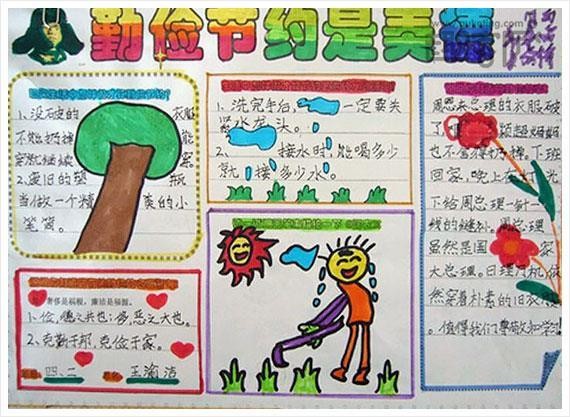 勤俭节约是美德
1、没破的 衣服
不能扔掉, 能
穿就继续
2、废旧的塑 瓶
当做一个精 美的小
笔筒。
1、洗完手后, 一定要关
紧水龙头。
2、 接水时,能喝多少
就 接多少水。
奢侈是祸根，廉洁是福源。
1、俭,德之共也;侈,恶之大也。
2、克勤于邦,克俭于家。
四、二 王渝洁
周恩来总理的衣服破
了
也不舍得扔掉。下班
回家,晚上在 光
下给周总理一针一
线的缝补。周总理
虽然是国 家
大总理。日理万机
然穿着朴素的旧衣服
。值得我们尊敬和学习